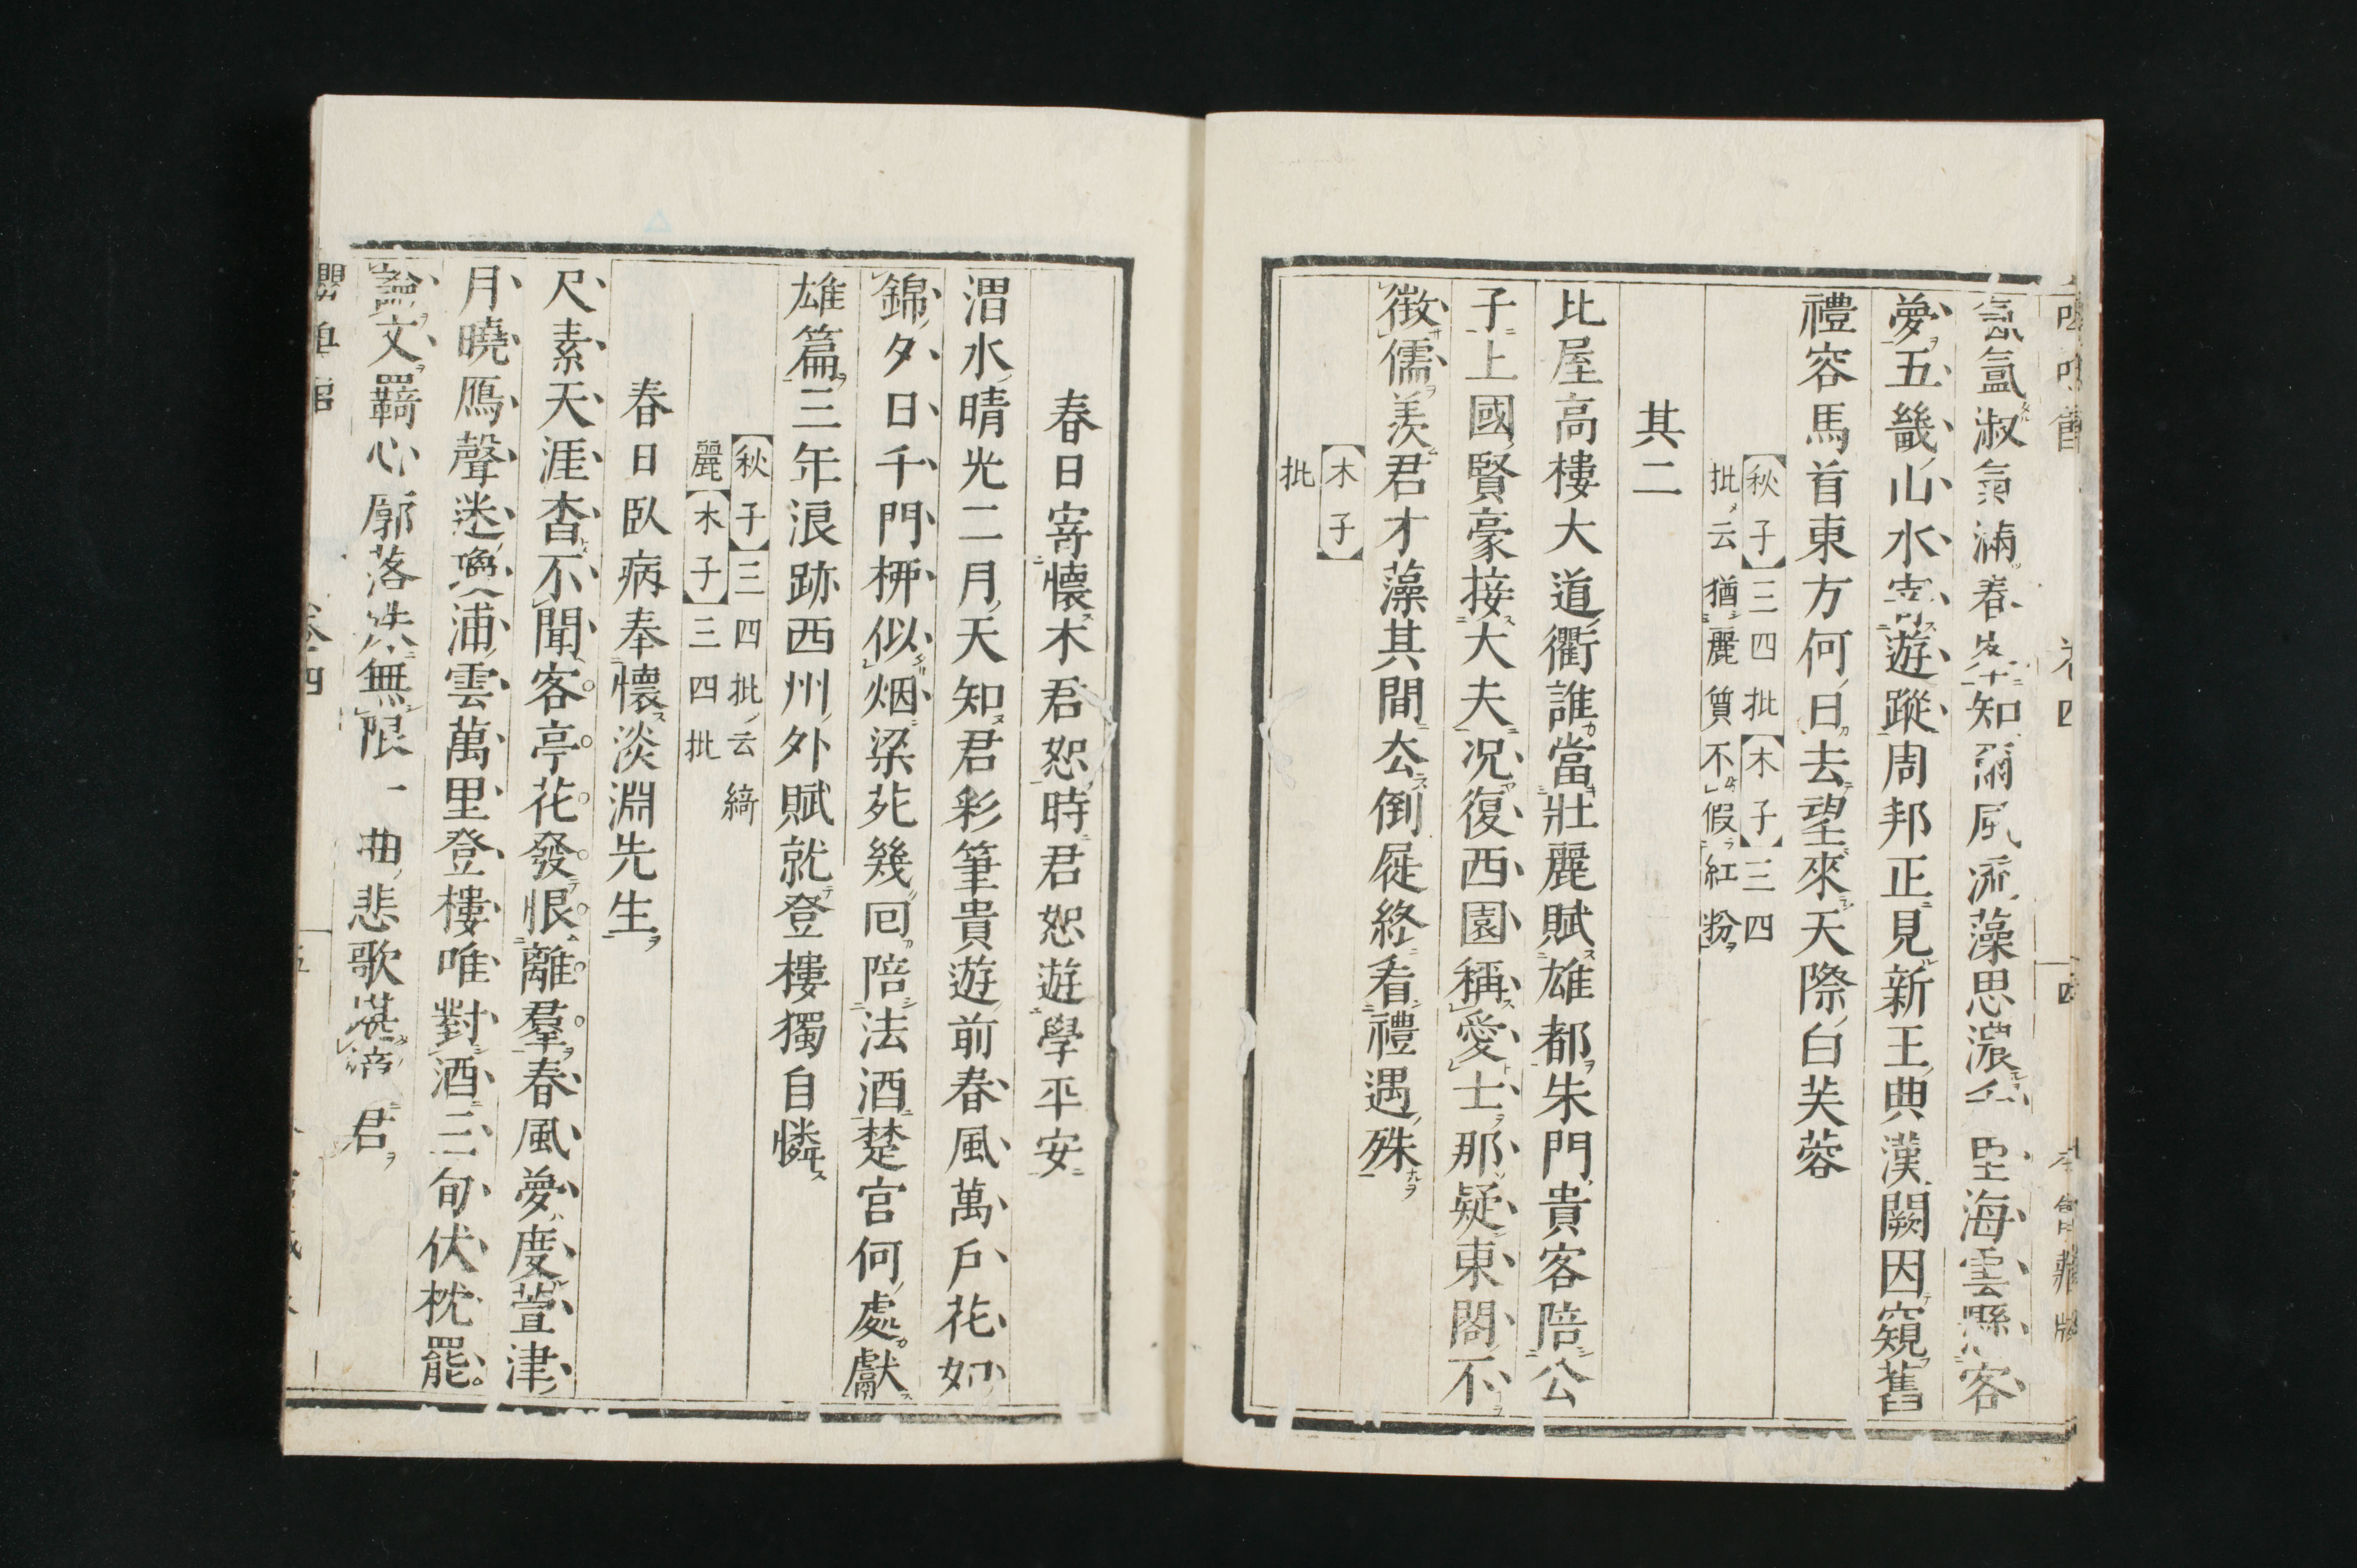 氤氳淑氣滿春峯知爾風流藻思濃海雲懸客
夢五畿山水寄遊蹤周邦正見新王典漢闕因窺舊
禮容馬首東方何日去望來天際白芙蓉
【秋子】三四批【木子】三四
批云猶麗質不假紅粉
其二
比屋高樓大道衢誰當壯麗賦雄都朱門貴客陪公
子上國賢豪接大夫況復西園稱愛士那疑東閣不
徵儒羨君才藻其間在倒屣終看禮遇殊
【木子】
批
卷四
春日寄懷木君恕時君恕遊學平安
渭水晴光二月天知君彩筆貴遊前春風萬戶花如
錦夕日千門柳似烟梁苑幾回陪法酒楚宮何處獻
雄篇三年浪跡西州外賦就登樓獨自憐
【秋子】三四批云綺
麗【木子】三四批
春日臥病奉懷淡淵先生
尺素天涯杳不聞客亭花發恨離羣春風夢度萱津
月曉鴈聲迷浦雲萬里登樓唯對酒三旬伏枕罷
論文羇心廓落愁無限一曲悲歌堪寄君
卷四